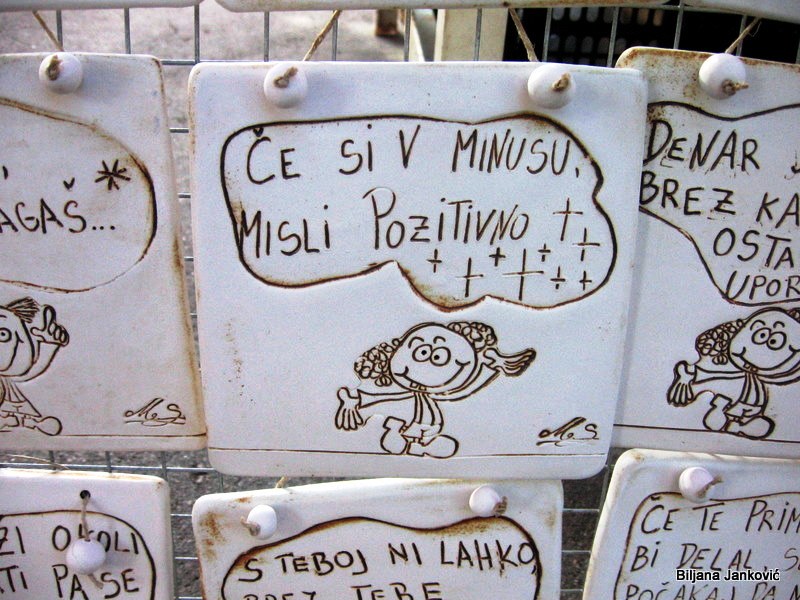 AGAŠ...
ČE SI V MINUSU,
MISLI POZITIVNO
DENAR
BREZ
M&S
M&S
OKOLI
PA SE
S TEBOJ NI LAHKO,
BREZ TEBE
ČE TE
BI DELAL,
POČAKAJ DA
Biljana Janković